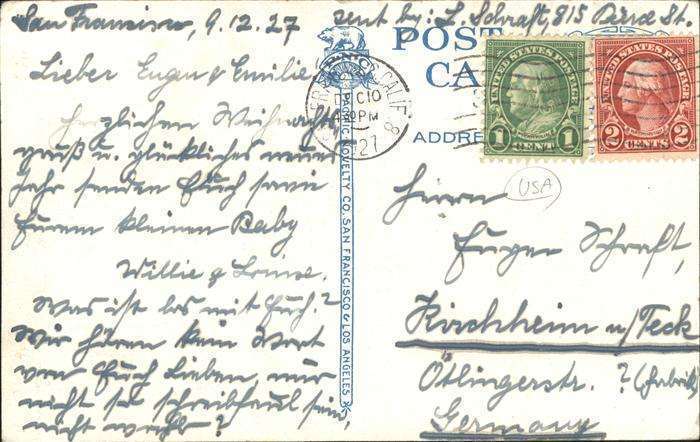 San Francisco, 9.12.27 sent by: L. Schraft, 815 St.
Lieber Eugen & Emilie
Herzlichen Weihnachts
gruß u. glückliches neues
Jahr senden Euch sowie
Eurem kleinen Baby
Willie & Louise.
Was ist los mit Euch?
Wir hören kein Wort
von Euch Lieben, nur
nicht so schreibfaul sein,
nicht wahr?
PACIFIC NOVELTY CO. SAN FRANCISCO & LOS ANGELES
POST
CA
ADDRE
CALIF.
DEC 10
PM
1927
8
UNITED STATES POSTAGE
1 CENT 1
UNITED STATES POSTAGE
2 CENTS 2
USA
Herrn
Eugen Schraft,
Kirchheim u/Teck
Ötlingerstr. ? (Fabrik)
Germany